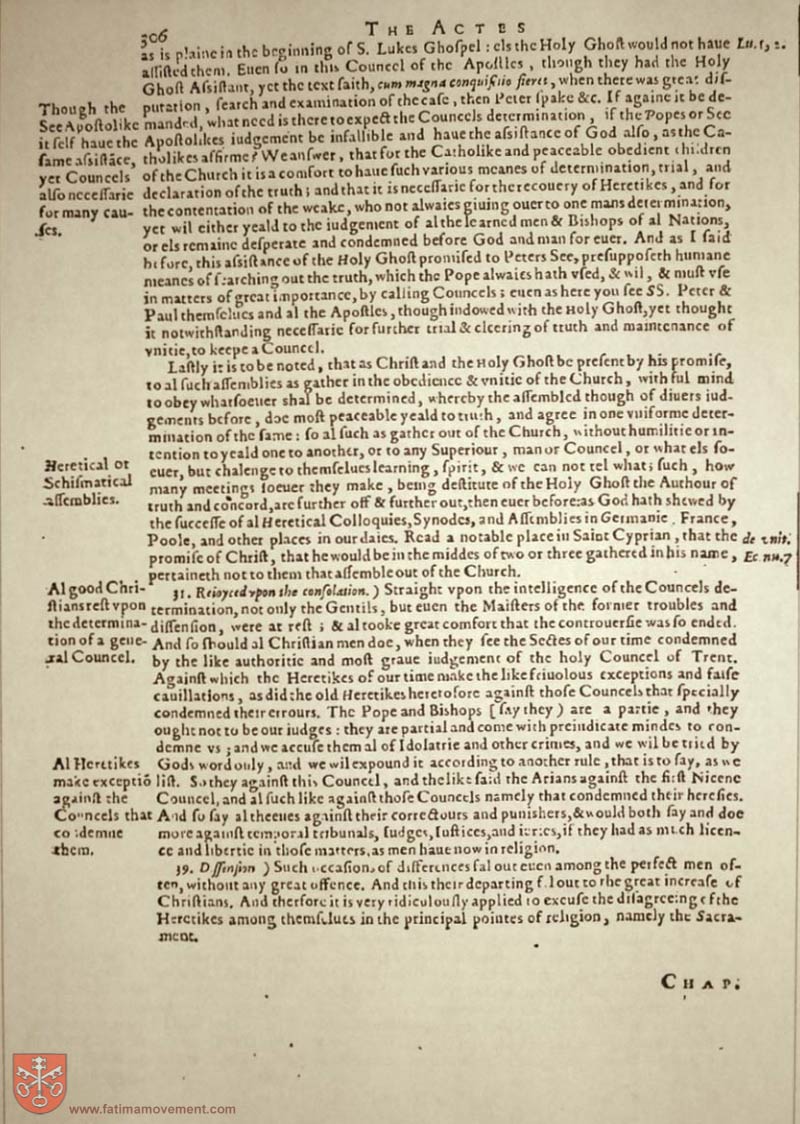 306
THE ACTES
as is plaine in the beginning of S. Lukes Ghoſpel: els the Holy Ghoſt would not haue
Lu. 1, 2.
aſſiſted them. Euen ſo in this Councel of the Apoſtles, though they had the Holy
Ghoſt Aſsiſtant, yet the text ſaith, cum magna conquiſitio fieret, when there was great diſ-
putation, ſearch and examination of the caſe, then Peter ſpake &c. If againe it be de-
manded, what need is there to expect the Councels determination, if the Popes or See
Apoſtolikes iudgement be infallible and haue the aſsiſtance of God alſo, as the Ca-
tholikes affirme? We anſwer, that for the Catholike and peaceable obedient children
of the Church it is a comfort to haue ſuch various meanes of determination, trial, and
declaration of the truth; and that it is neceſſarie for the recouery of Heretikes, and for
the contentation of the weake, who not alwaies giuing ouer to one mans determination,
yet wil either yeald to the iudgement of al the learned men & Bishops of al Nations,
or els remaine deſperate and condemned before God and man for euer. And as I ſaid
before, this aſsiſtance of the Holy Ghoſt promiſed to Peters See, preſuppoſeth humane
meanes of ſearching out the truth, which the Pope alwaies hath vſed, & wil, & muſt vſe
in matters of great importance, by calling Councels; euen as here you ſee SS. Peter &
Paul themſelues and al the Apoſtles, though indowed with the Holy Ghoſt, yet thought
it notwithſtanding neceſſarie for further trial & cleering of truth and maintenance of
vnitie, to keepe a Councel.
Though the
See Apoſtolike
it ſelf haue the
ſame aſsiſtãce,
yet Councels
alſo neceſſarie
for many cau-
ſes.
Laſtly it is to be noted, that as Chriſt and the Holy Ghoſt be preſent by his promiſe,
to al ſuch aſſemblies as gather in the obedience & vnitie of the Church, with ful mind
to obey whatſoeuer shal be determined, whereby the aſſembled though of diuers iud-
gements before, doe moſt peaceable yeald to truth, and agree in one vniforme deter-
mination of the ſame: ſo al ſuch as gather out of the Church, without humilitie or in-
tention to yeald one to another, or to any Superiour, man or Councel, or what els ſo-
euer, but chalenge to themſelues learning, ſpirit, & we can not tel what; ſuch, how
many meetings ſoeuer they make, being deſtitute of the Holy Ghoſt the Authour of
truth and concord, are further off & further out, then euer before: as God hath shewed by
the ſucceſſe of al Heretical Colloquies, Synodes, and Aſſemblies in Germanie, France,
Poole, and other places in our daies. Read a notable place in Saint Cyprian, that the
promiſe of Chriſt, that he would be in the middes of two or three gathered in his name,
pertaineth not to them that aſſemble out of the Church.
Heretical or
Schiſmatical
aſſemblies.
de vnit.
Ec nu. 7
31. Reioyced vpon the conſolation.) Straight vpon the intelligence of the Councels de-
termination, not only the Gentils, but euen the Maiſters of the former troubles and
diſſenſion, were at reſt; & al tooke great comfort that the controuerſie was ſo ended.
And ſo should al Chriſtian men doe, when they ſee the Sectes of our time condemned
by the like authoritie and moſt graue iudgement of the holy Councel of Trent.
Againſt which the Heretikes of our time make the like friuolous exceptions and falſe
cauillations, as did the old Heretikes heretofore againſt thoſe Councels that ſpecially
condemned their errours. The Pope and Bishops [ſay they) are a partie, and they
ought not to be our iudges: they are partial and come with preiudicate mindes to con-
demne vs; and we accuſe them al of Idolatrie and other crimes, and we wil be tried by
Gods word only, and we wil expound it according to another rule, that is to ſay, as we
liſt. So they againſt this Councel, and the like ſaid the Arians againſt the firſt Nicene
Councel, and al ſuch like againſt thoſe Councels namely that condemned their hereſies.
And ſo ſay al theeues againſt their correctours and punishers, & would both ſay and doe
more againſt temporal tribunals, Iudges, Iuſtices, and iuries, if they had as much licen-
ce and libertie in thoſe matters, as men haue now in religion.
Al good Chri-
ſtians reſt vpon
the determina-
tion of a gene-
ral Councel.
Al Heretikes
make exceptiõ
againſt the
Councels that
condemne
them.
39. Diſſenſion) Such occaſions of differences fal out euen among the perfect men of-
ten, without any great offence. And this their departing fel out to the great increaſe of
Chriſtians. And therfore it is very ridiculouſly applied to excuſe the diſagreeing of the
Heretikes among themſelues in the principal pointes of religion, namely the Sacra-
ment.
CHAP.
www.fatimamovement.com